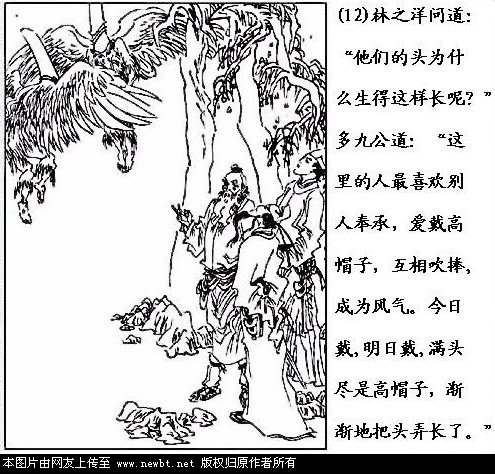 (12)林之洋问道:
“他们的头为什
么生得这样长呢?”
多九公道:“这
里的人最喜欢别
人奉承,爱戴高
帽子,互相吹捧,
成为风气。今日
戴,明日戴,满头
尽是高帽子,渐
渐地把头弄长了。”
本图片由网友上传至 www.newbt.net 版权归原作者所有